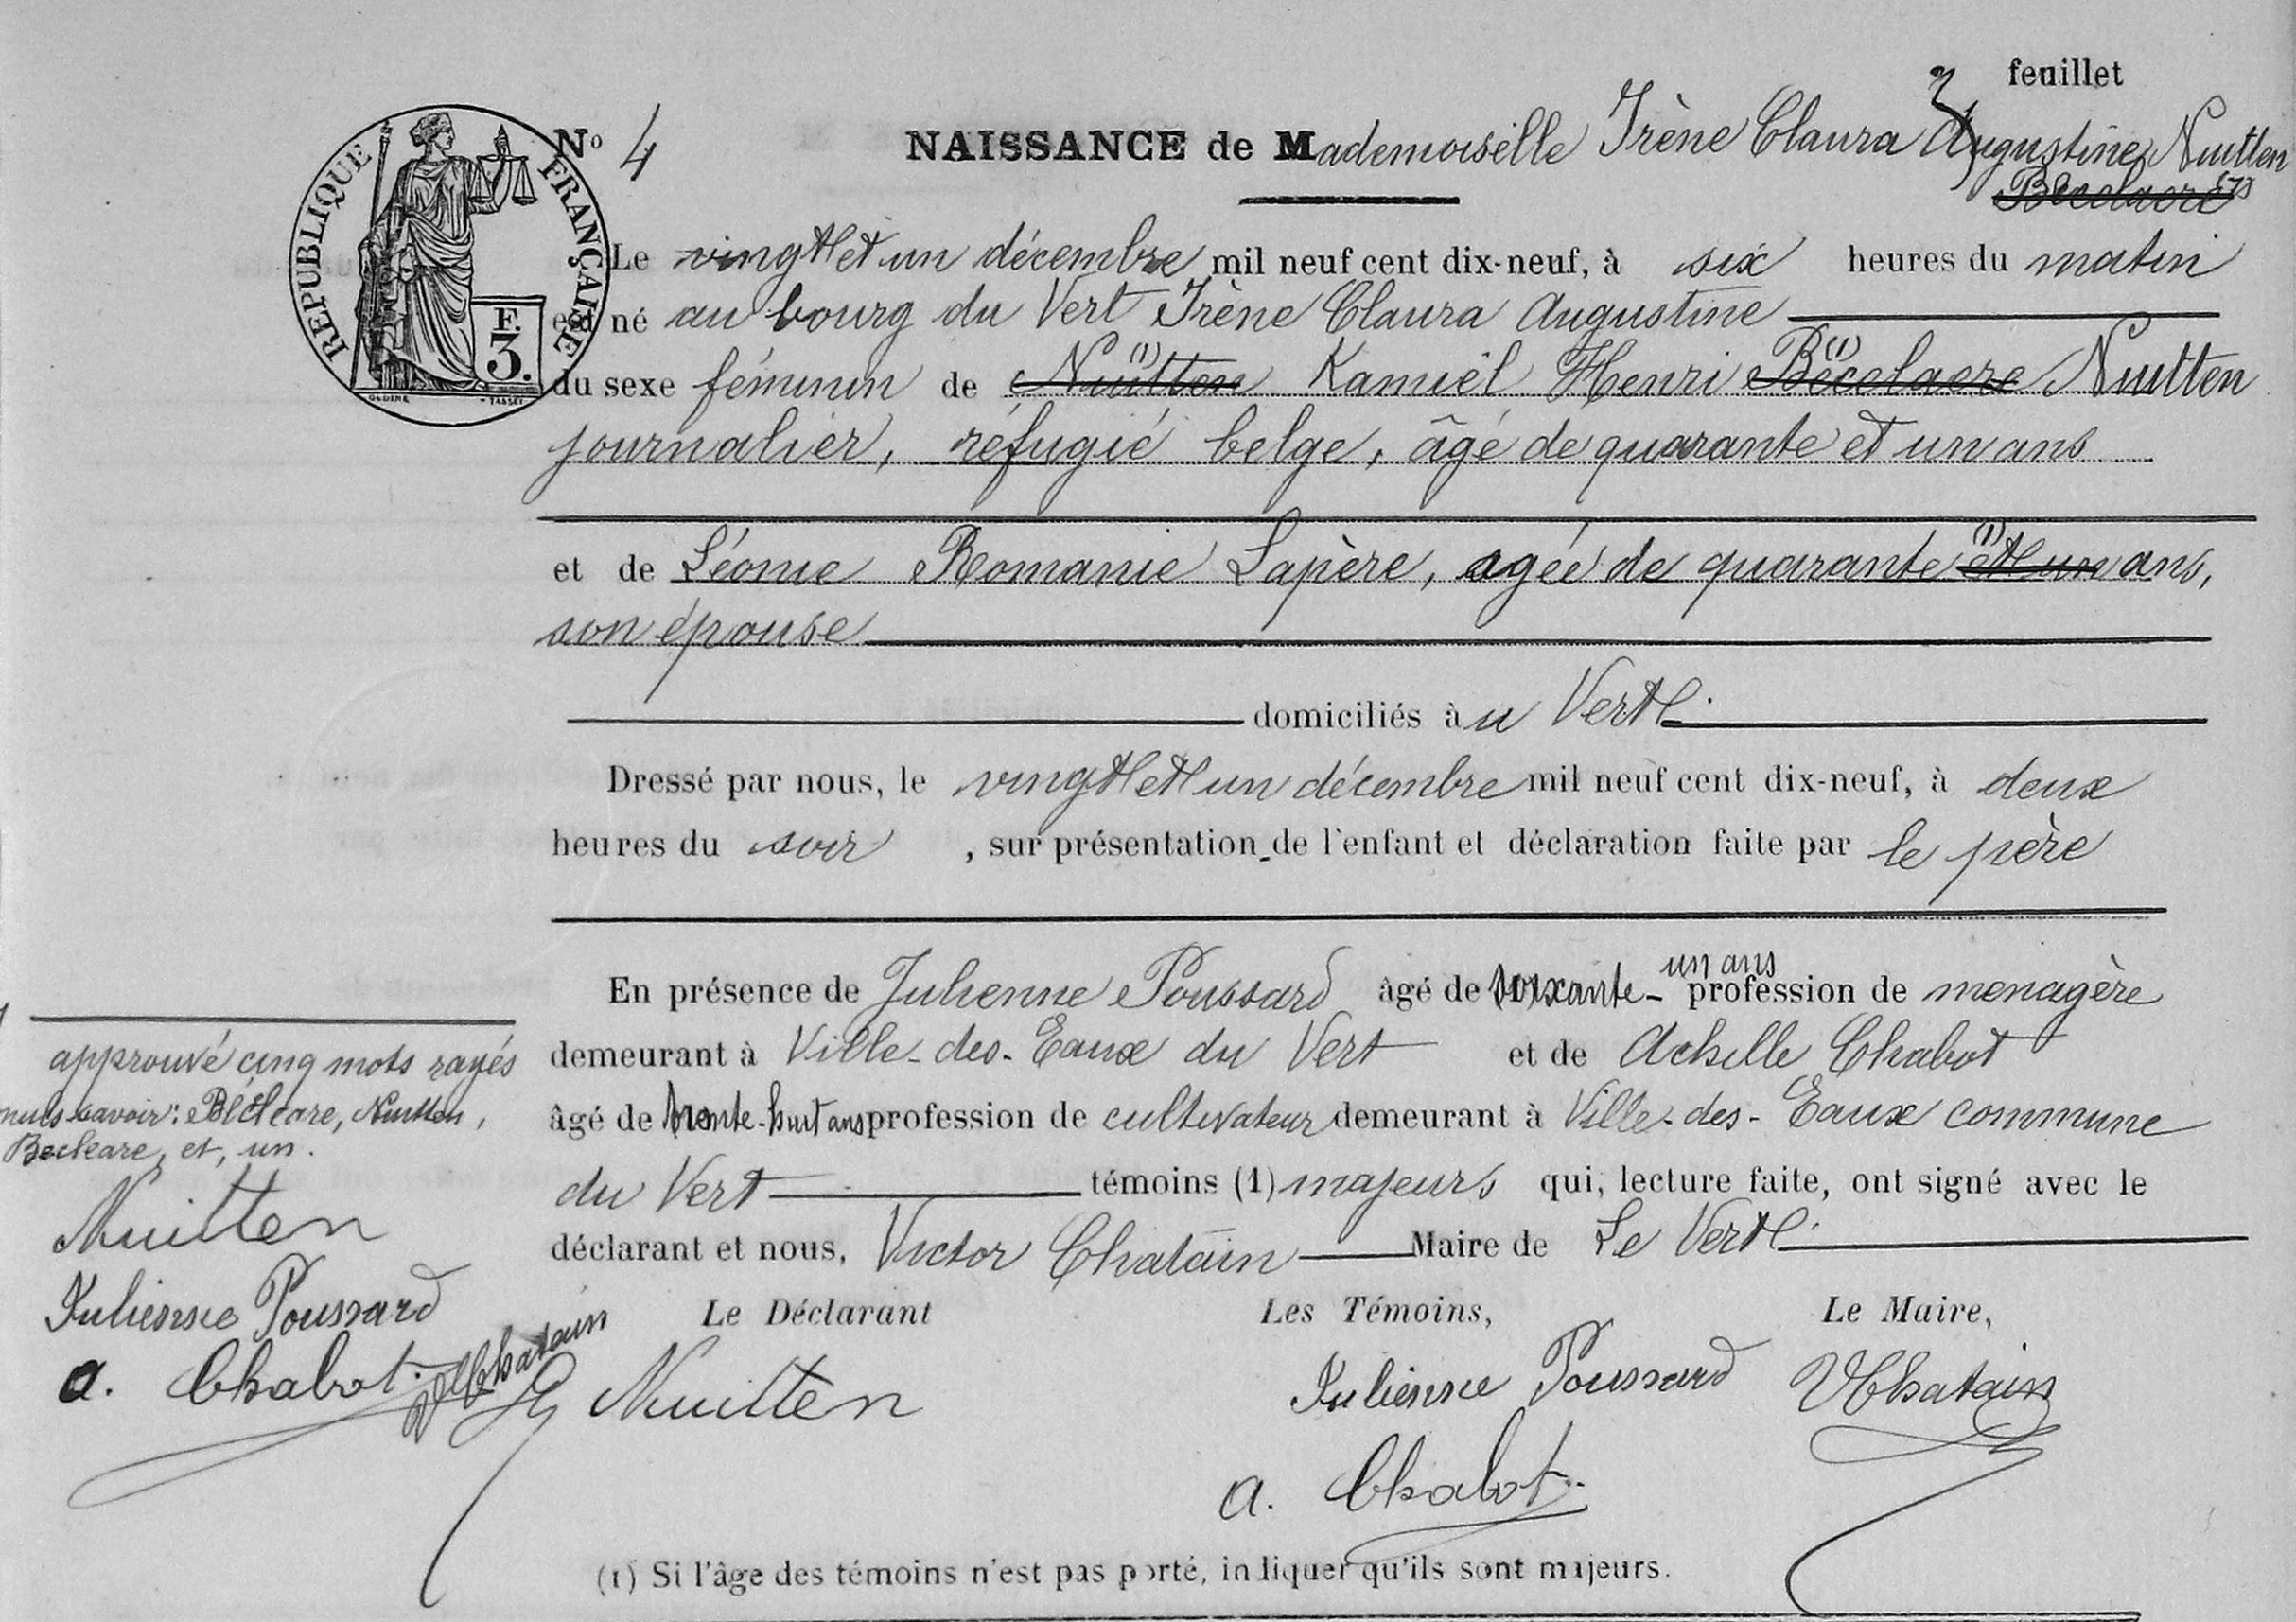 3 feuillet
RÉPUBLIQUE FRANÇAISE
F. 3.
OUDINÉ TASSET
No 4 NAISSANCE de Mademoiselle Irène Claura Augustine Nuitten
Bécelaere (1)
Le vingt et un décembre mil neuf cent dix-neuf, à six heures du matin
est né au bourg du Vert Irène Claura Augustine
du sexe féminin de Nuitten (1) Kamiel Henri Bécelaere (1) Nuitten
journalier, réfugié belge, âgé de quarante et un ans
et de Léonie Romanie Lapère, agée de quarante et un (1) ans,
son épouse
domiciliés à u Vert.
Dressé par nous, le vingt et un décembre mil neuf cent dix-neuf, à deux
heures du soir , sur présentation de l'enfant et déclaration faite par le père
En présence de Julienne Poussard âgé de soixante-un ans profession de menagère
demeurant à Ville-des-Eaux du Vert et de Achille Chabot
âgé de trente-huit ans profession de cultivateur demeurant à Ville-des-Eaux commune
du Vert témoins (1) majeurs qui, lecture faite, ont signé avec le
déclarant et nous, Victor Chatain Maire de Le Vert.
approuvé cinq mots rayés
nuls savoir: Bécleare, Nuitten,
Becleare, et, un.
Nuitten
Julienne Poussard
a. Chabot. VChatain
Le Déclarant Les Témoins, Le Maire,
Nuitten Julienne Poussard VChatain
a. Chabot.
(1) Si l'âge des témoins n'est pas porté, indiquer qu'ils sont majeurs.